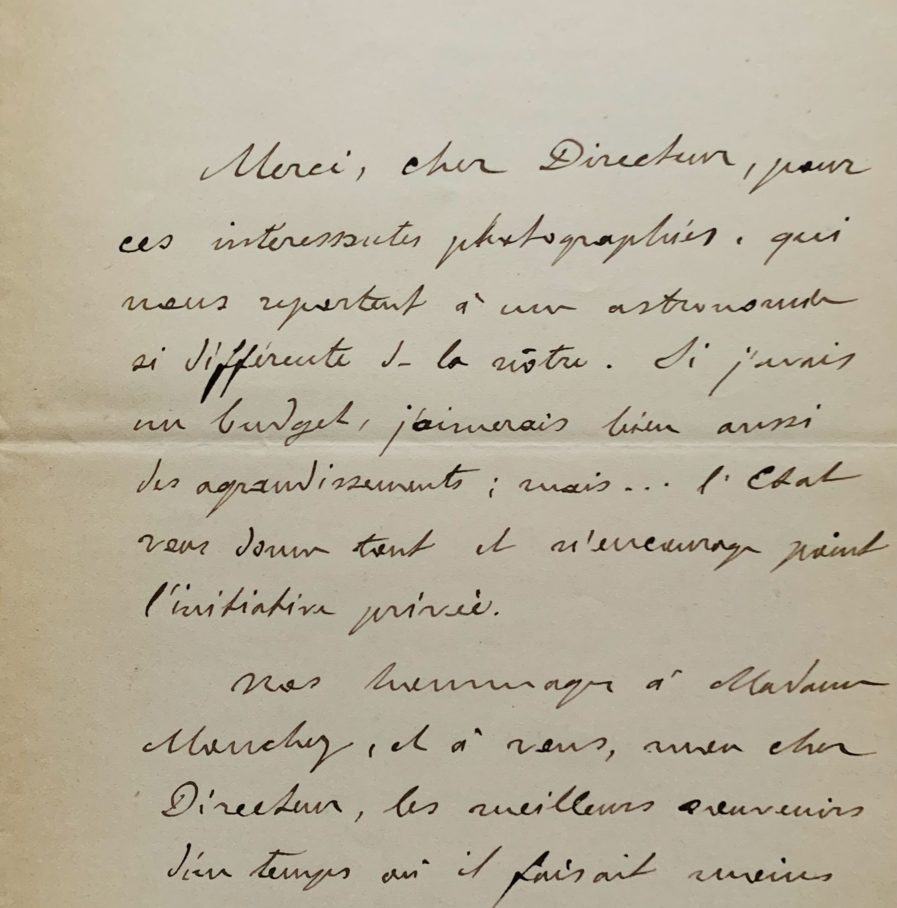 Merci, cher Directeur, pour
ces interessantes photographies. qui
nous reportent à une astronomie
si différente de la nôtre. Si j'avais
un budget, j'aimerais bien aussi
des agrandissements ; mais... l'Etat
vous donne tout et n'encourage point
l'initiative privée.
Nos hommages à Madame
Mouchez, et à vous, mon cher
Directeur, les meilleurs souvenirs
d'un temps où il faisait moins